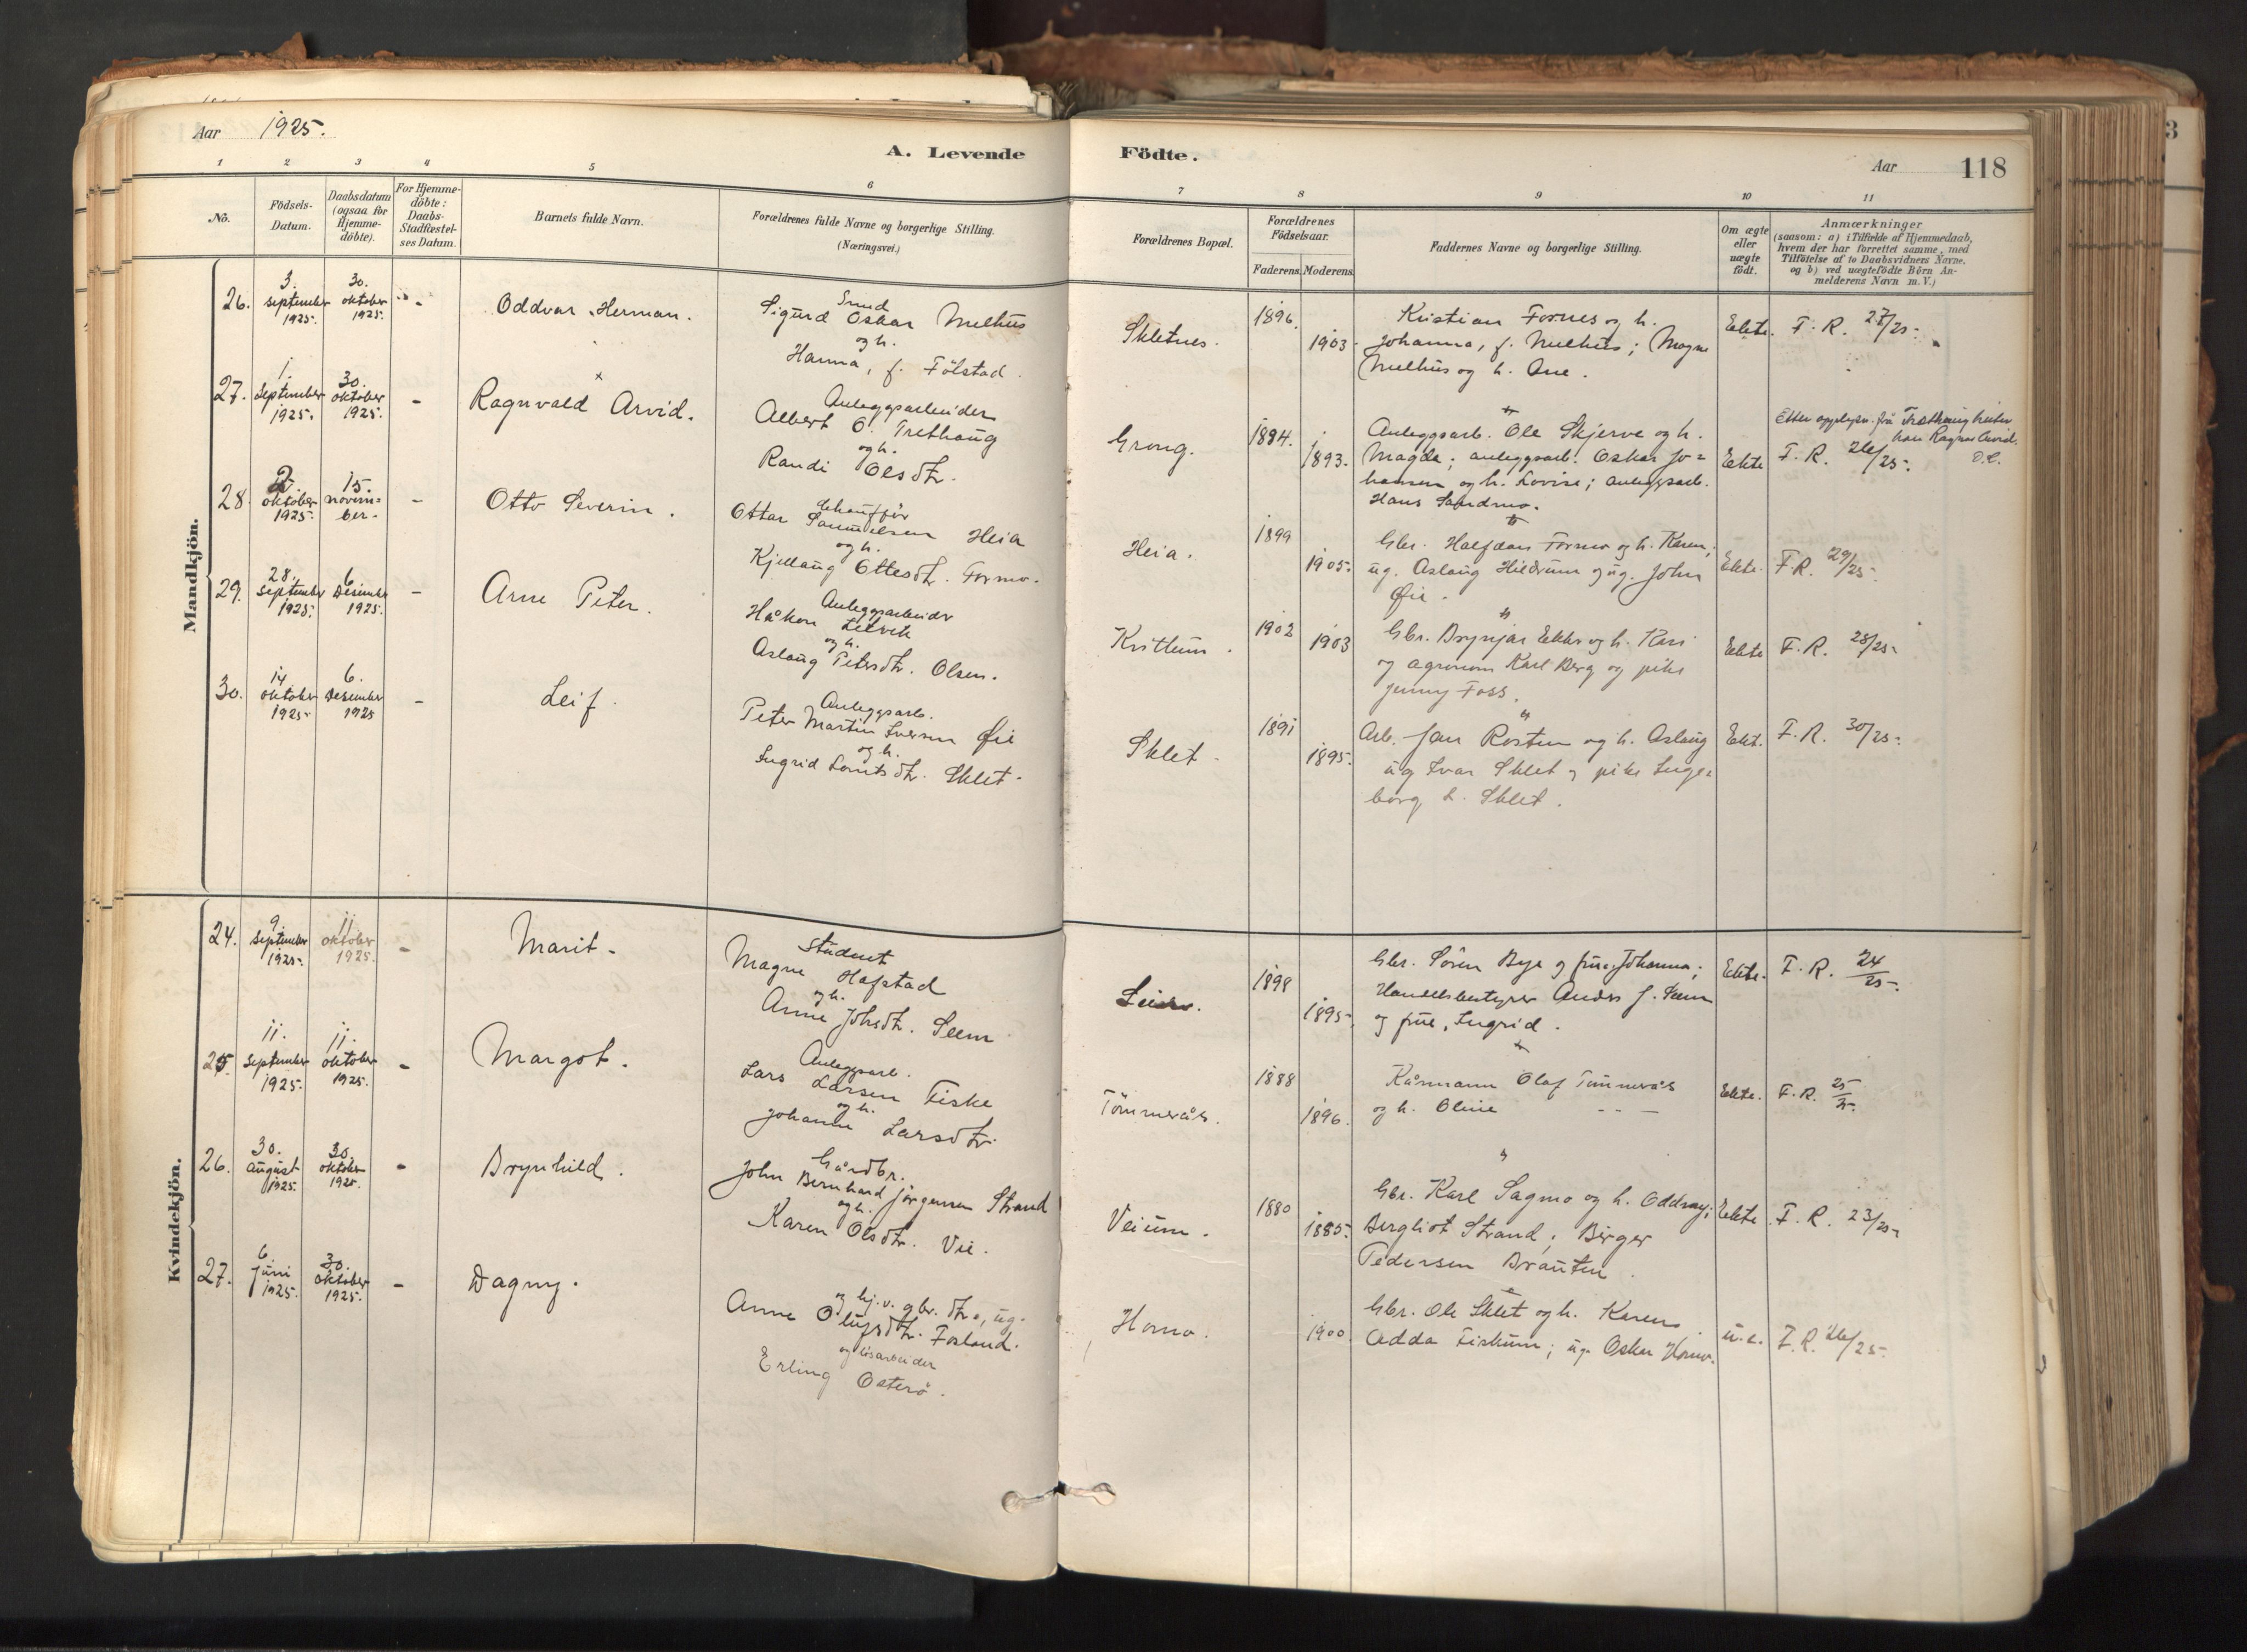 Aar 1925.
A. Levende Födte.
Aar 118
1 2 3 4 5 6 7 8 9 10 11
No.
Födsels-
Datum.
Daabsdatum
(ogsaa for
Hjemme-
döbte).
For Hjemme-
döbte:
Daabs-
Stadfæstel-
ses Datum.
Barnets fulde Navn.
Forældrenes fulde Navne og borgerlige Stilling.
(Næringsvei.)
Forældrenes Bopæl.
Forældrenes
Födselsaar.
Faderens. Moderens.
Faddernes Navne og borgerlige Stilling.
Om ægte
eller
uægte
födt.
Anmærkninger
(saasom: a) i Tilfælde af Hjemmedaab,
hvem der har forrettet samme, med
Tilföielse af to Daabsvidners Navne.
og b) ved uægtefödte Börn An-
melderens Navn m. V.)
Mandkjön.
26.
3.
september
1925.
30.
oktober
1925.
-
Oddvar Herman.
Smed
Sigurd Oskar Melhus
og h.
Hanna, f. Fölstad.
Skletnes.
1896.
1903.
Kristian Fornes og h.
Johanna, f. Melhus; Magne
Melhus og h. Ane.
Ekte.
F. R. 27/25.
27.
1.
September
1925.
30.
oktober
1925.
-
x
Ragnvald Arvid.
Anleggsarbeider
Albert O. Trethaug
og h.
Randi Olsdtr.
Grong.
1894.
1893.
Anleggsarb. Ole Skjerve og h.
Magda; anleggsarb. Oskar Jo=
hansen og h. Lovise; anleggsarb.
Hans Sandmo.
Ekte
Efter opplysn. fra Trethaug heter
han Ragnar Arvid.
F. R. 26/25.
28.
2.
oktober
1925.
15.
novem=
ber.
-
Otto Severin.
Chauffør
Ottar Samuelsen Heia
og h.
Kjellaug Ottesdtr. Formo.
Heia.
1899
1905.
Gbr. Halfdan Formo og h. Karen;
ug. Aslaug Hildrum og ug. John
Øie.
Ekte.
F. R. 29/25.
29.
28.
september
1925.
6.
Desember
1925.
-
Arne Peter.
Anleggsarbeider
Håkon Leevik
og h.
Aslaug Petersdtr. Olsen.
1902
1903
Gbr. Brynjar Ekker og h. Kari
og agronom Karl Berg og pike
Jenny Foss.
Ekte
F. R. 28/25.
30.
14.
oktober
1925.
6.
Desember
1925
-
Leif.
Anleggsarb.
Peter Martin Iversen Øie
og h.
Ingrid Lorntsdtr. Sklet.
Sklet.
1891
1895.
Arb. Jon Rosten og h. Aslaug
ug Ivar Sklet og pike Inge=
borg L. Sklet.
Ekt.
F. R. 30/25.
Kvindekjön.
24.
9.
september
1925.
11.
oktober
1925.
-
Marit.
student
Magne Hafstad
og h.
Anne Johsdtr. Seem
1898
1895.
Gbr. Sören Bye og frue Johanna;
Handelsbestyrer Anders J. Seem
og frue, Ingrid.
Ekte.
F. R. 24/25.
25.
11.
september
1925.
11.
oktober
1925.
-
Margot.
Anleggsarb.
Lars Larsen Fiske
og h.
Johanne Larsdtr.
Tömmerås.
1888
1896.
Kårmann Olaf Tömmerås
og h. Oline - - -
Ekte.
F. R. 25/25.
26.
30.
august
1925.
30.
oktober
1925.
-
Brynhild.
Gårdbr.
John Bernhard Jörgensen Strand
og h.
Karen Olsdtr. Vie.
Veium.
1880
1885.
Gbr. Karl Sagmo og h. Oddny;
Bergliot Strand; Birger
Pedersen Brauten.
Ekte
F. R. 23/25.
27.
6.
juni
1925.
30.
oktober
1925.
-
Dagny.
og hj. v. gbr. dtr., ug.
Anne Olufsdtr. Fosland.
og løsarbeider
Erling Osterö.
Homo.
1900
Gbr. Ole Sklet og h. Karen
Adda Fiskum; ug. Oskar Homo.
u.e.
F. R. 26/25.